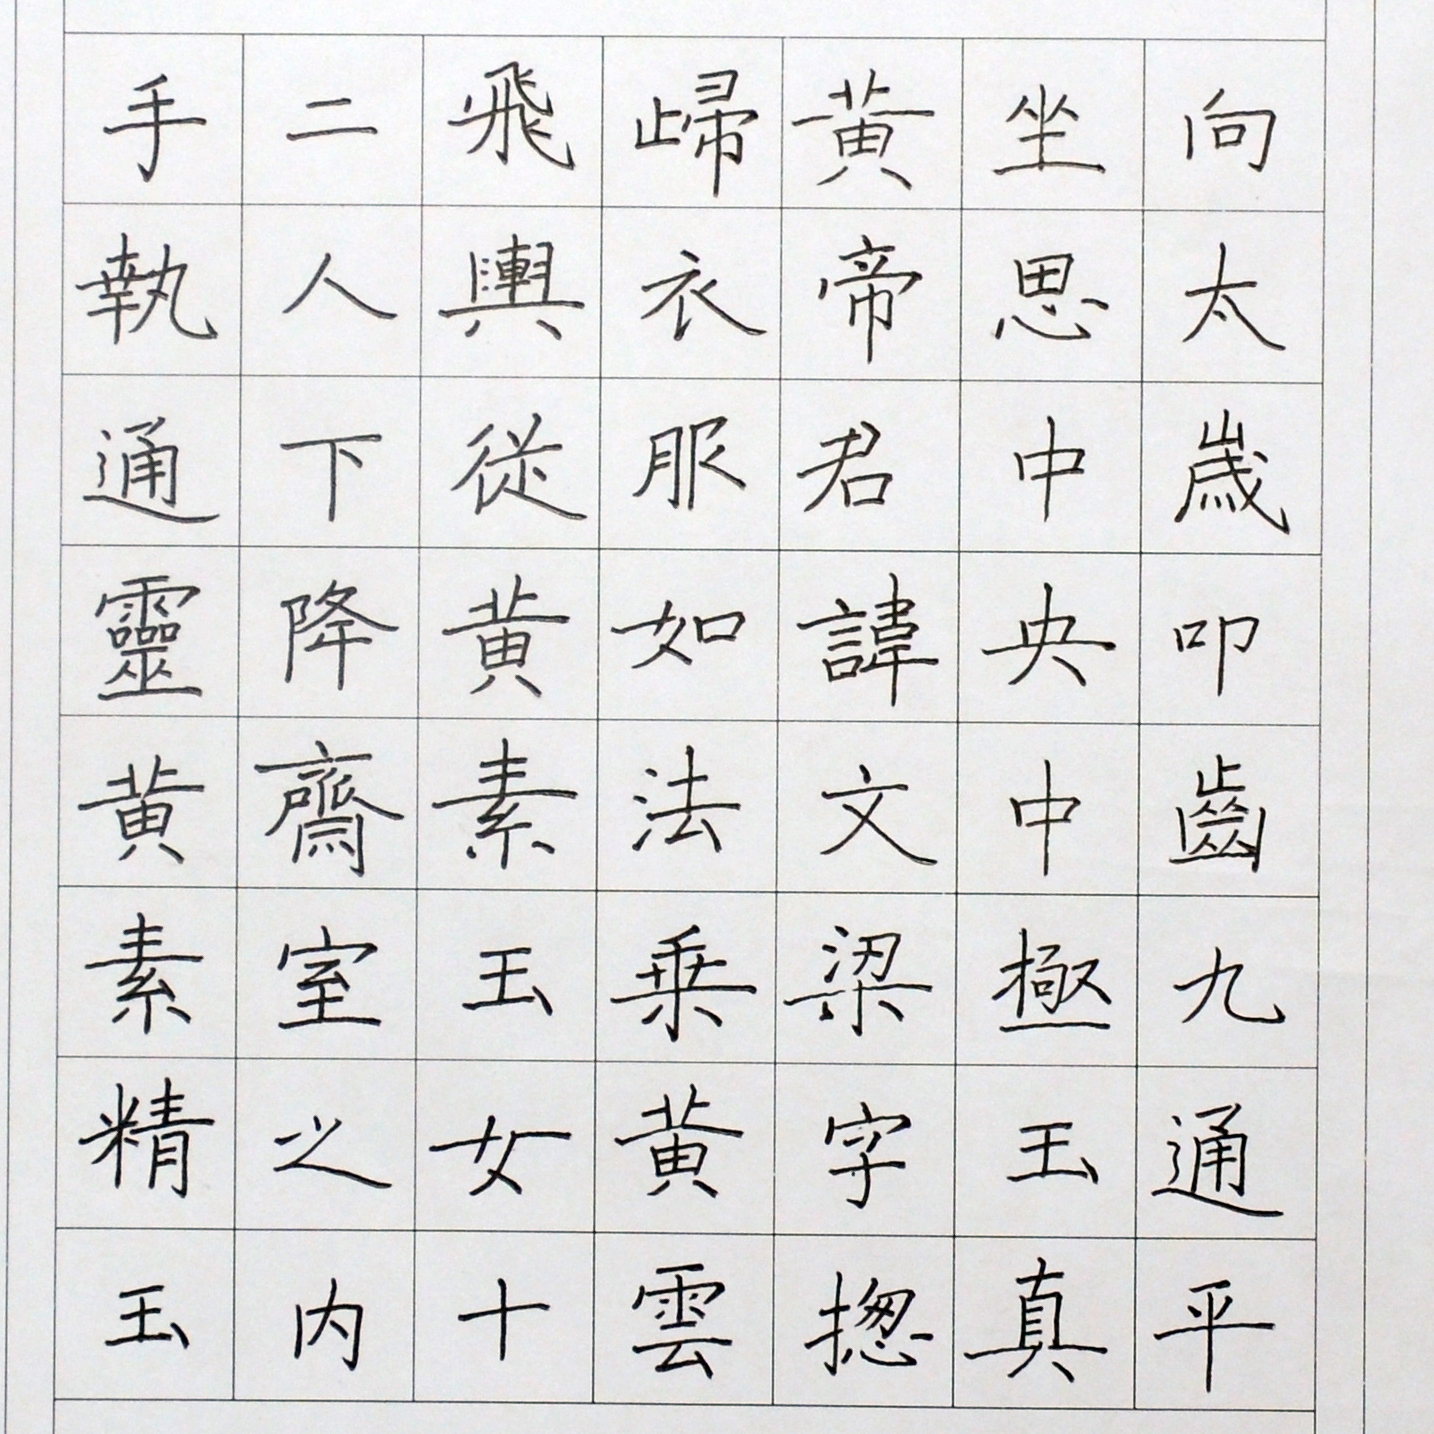 向太歲叩齒九通平
坐思中央中極玉真
黃帝君諱文梁字揔
歸衣服如法乗黃雲
飛輿從黃素玉女十
二人下降齋室之内
手執通靈黃素精玉